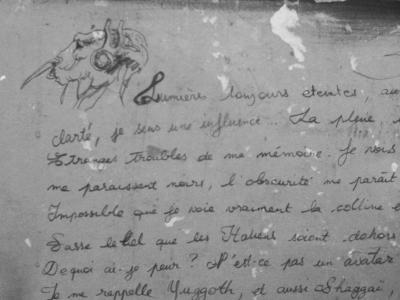 Lumières toujours éteintes, au
clarté, je sens une influence... La pluie,
Etranges troubles de me mémoire. Je vois
me paraissent noirs, l'obscurité me paraît
Impossible que je voie vraiment la colline
Fasse le ciel que les Italiens soient dehors
De quoi ai-je peur? N'est-ce pas un avatar
Je me rappelle Yuggoth, et aussi Shaggaï,